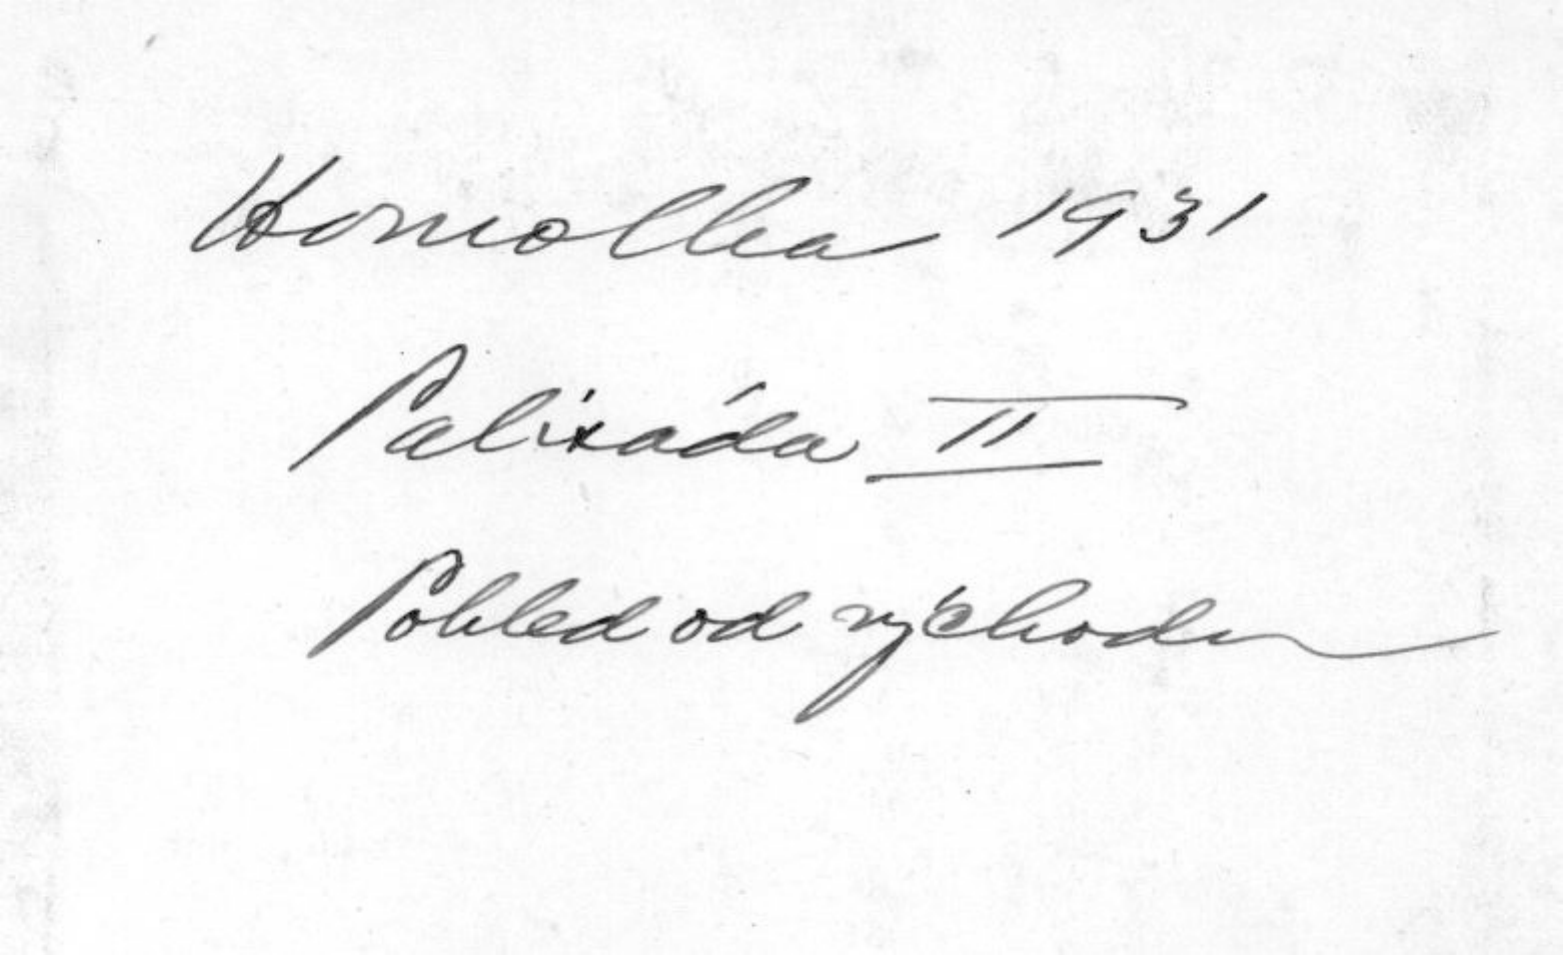 Homolka 1931
Palisáda II
Pohled od východu